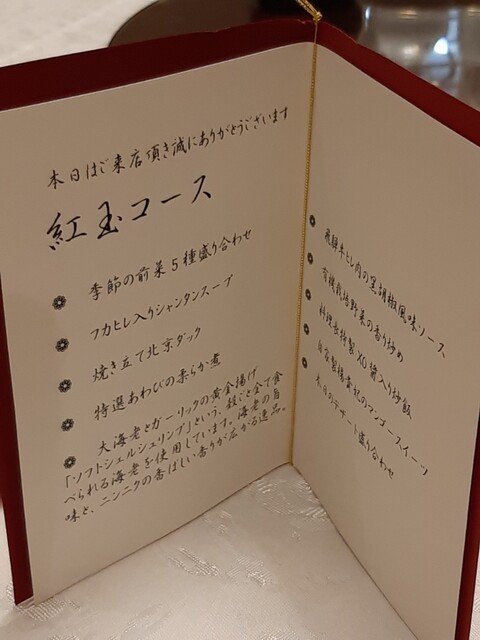 本日はご来店頂き誠にありがとうございます
紅玉コース
季節の前菜5種盛り合わせ
フカヒレ入りシャンタンスープ
焼き立て北京ダック
特選あわびの柔らか煮
大海老とガーリックの黄金揚げ
「ソフトシェルシュリンプ」という、殻ごと全て食
べられる海老を使用しています。海老の旨
味と、ニンニクの香ばしい香りが広がる逸品。
飛騨牛ヒレ肉の黒胡椒風味ソース
有機栽培野菜の香り炒め
料理長特製XO醤入り炒飯
自家製楊貴妃のマンゴースイーツ
本日のデザート盛り合わせ